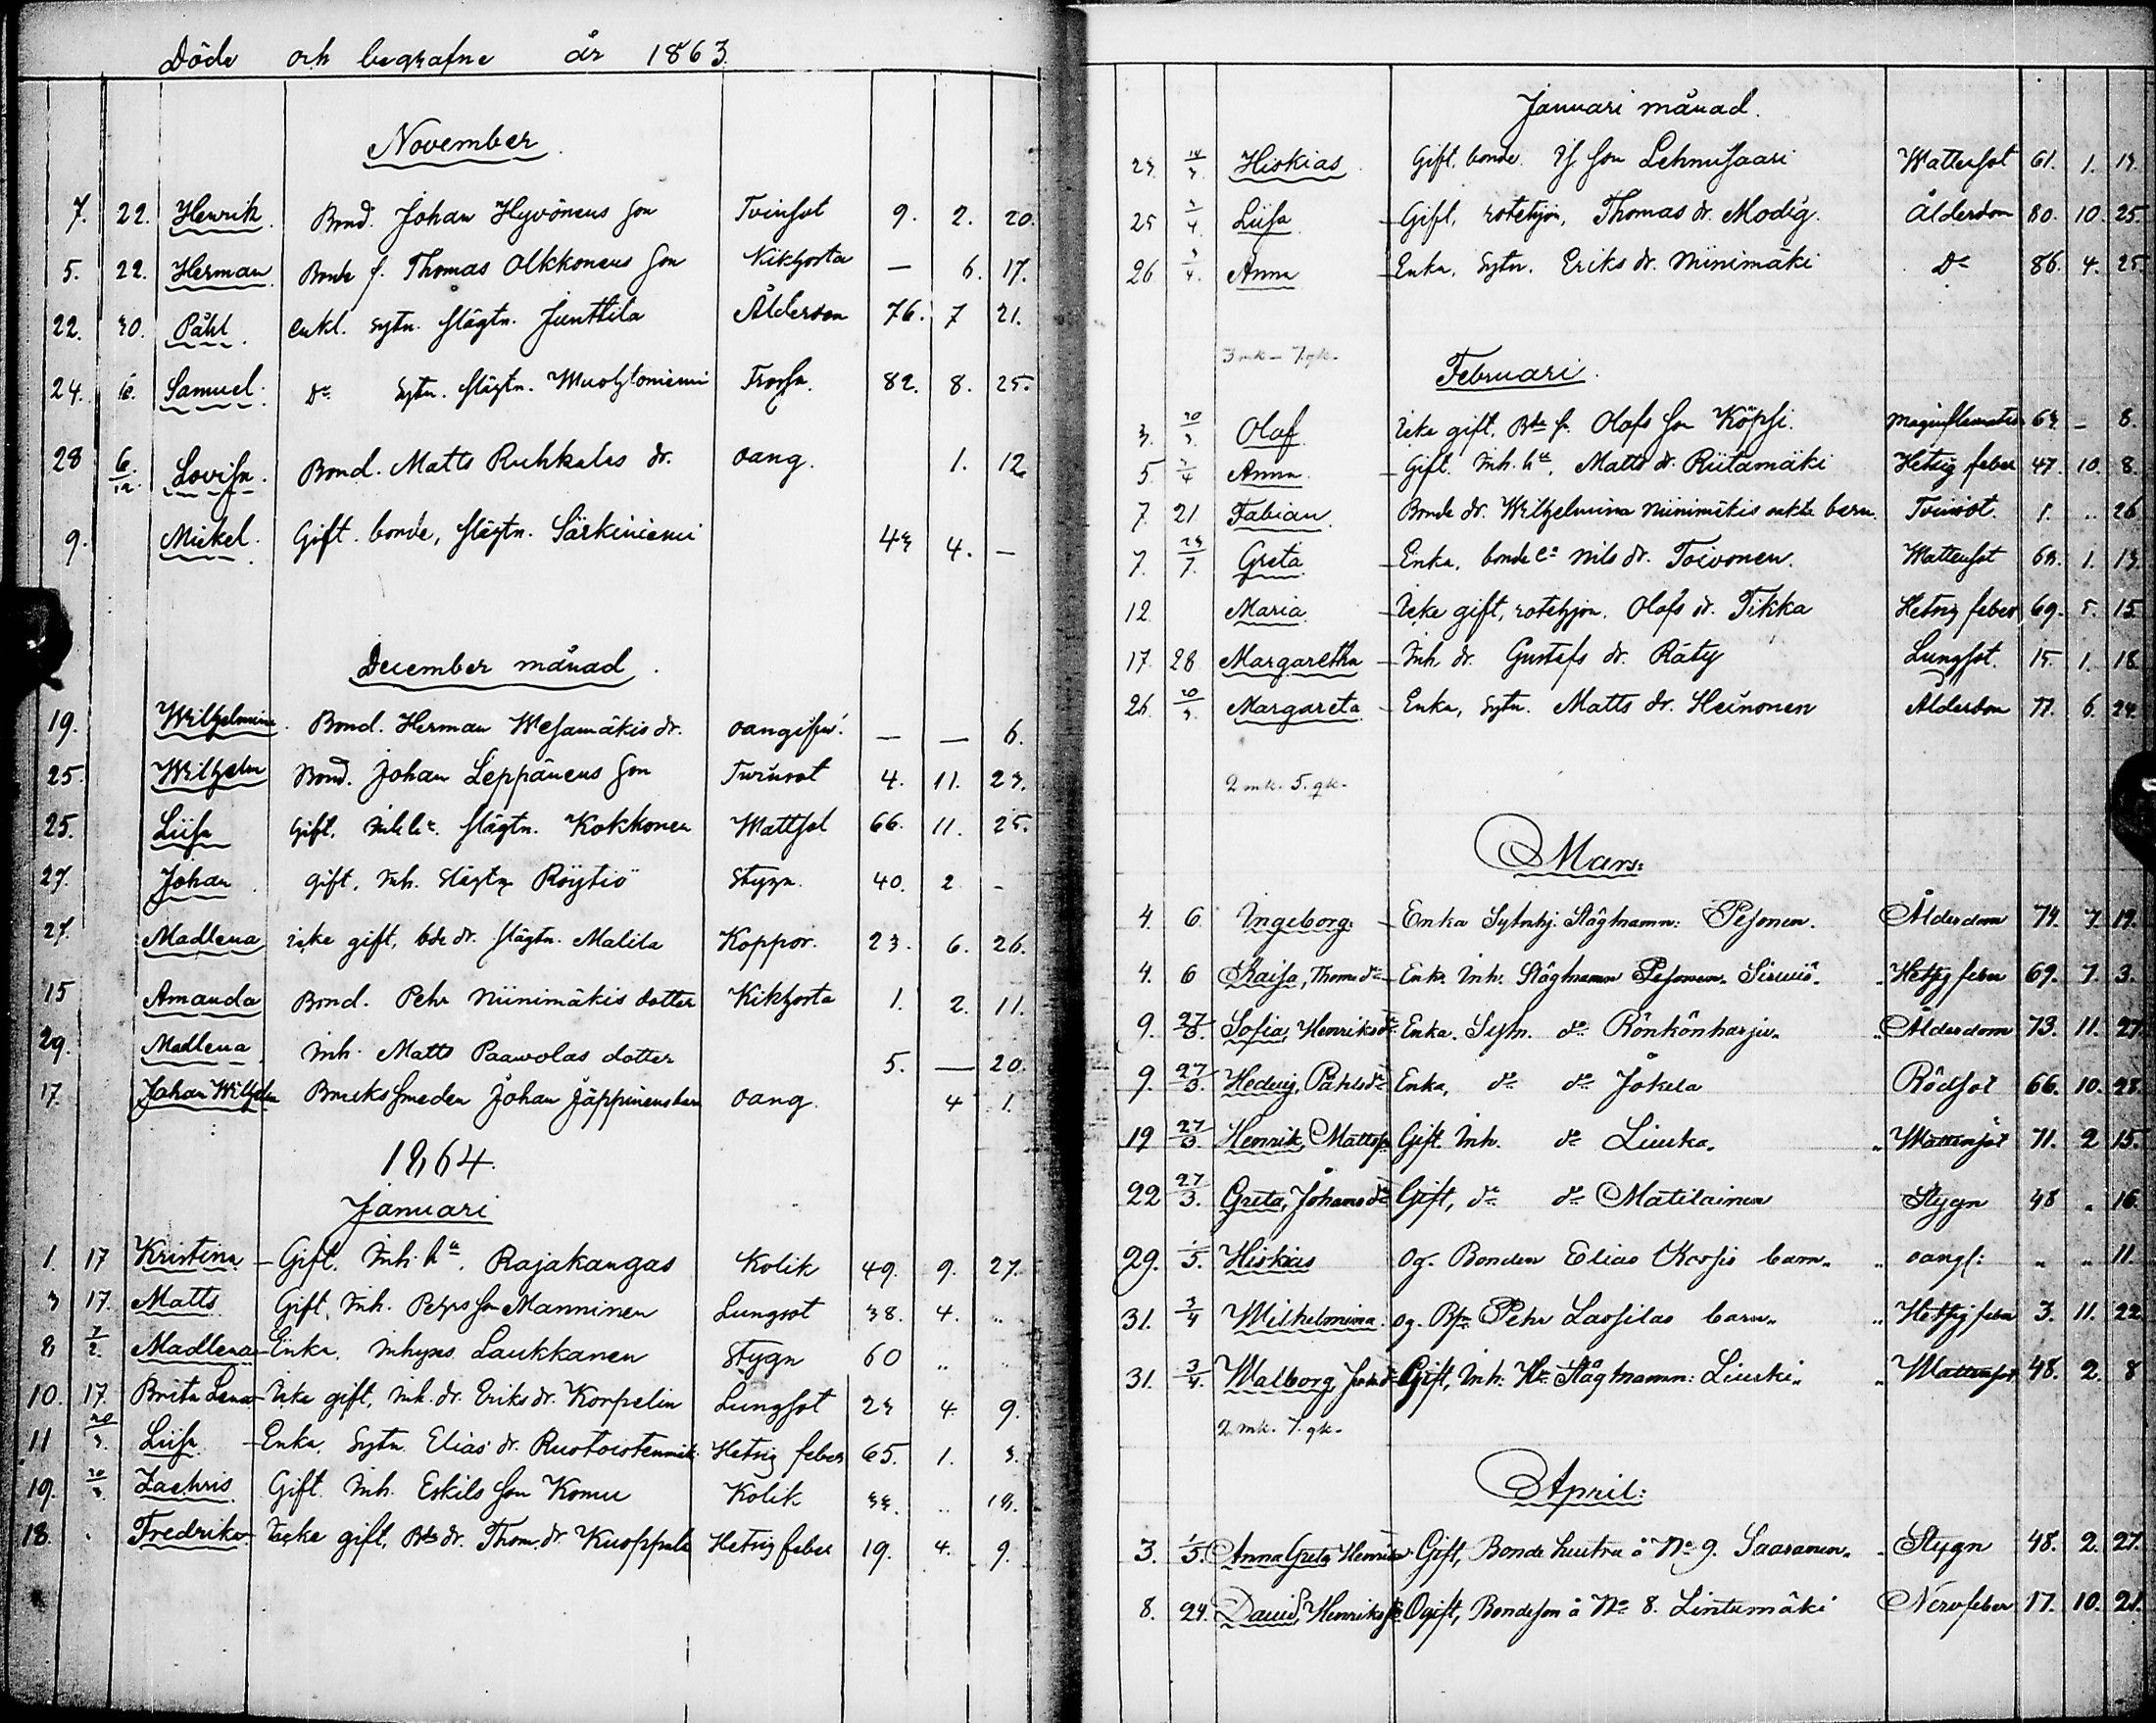 Döde och begrafne år 1863.
November
7. 22. Henrik. Bond. Johan Hyvönens son Tvinsot 9. 2. 20.
5. 22. Herman Bonde f. Thomas Olkkonens son Kikhosta — 6. 17.
22. 30. Påhl. enkl. sytn. slägtn. Junttila Ålderdom 76. 7 21.
24. Samuel. Do sytn. slägtn. 82. 8. 25.
28 6/12 Lovisa. Bond. Matts Ruhkalas dr. oang. 1. 12
9. Mickel. Gift. bonde, slägtn. Särkiniemi 43 4. —
December månad.
19. Wilhelmina. Bond. Herman Wesamäkis dr. oangifvit — — 6.
25. Wilhelm Bond. Johan Leppänens son Tvinsot 4. 11. 23.
25. Liisa Gift, inh. hu. slägtn. Kokkonen Wattsot 66. 11. 25.
27. Johan gift, inh. slägtn. Röytiö Stygn. 40. 2 -
27. Madlena icke gift, bde dr. slägtn. Malila Koppor. 23. 6. 26.
15 Amanda Bond. Pehr Niinimäkis dotter Kikhosta 1. 2. 11.
29. Madlena inh. Matts Paawolas dotter 5. — 20.
17. Johan Wilhelm Brukssmeden Johan Jäppinens barn oang. 4 1.
1864.
Januari
1. 17 Kristina - Gift. inh. hu. Rajakangas Kolik 49. 9. 27.
3 17. Matts Gift, inh. Pehrs son Manninen Lungsot 38. 4. ..
8 7/2. Madlena - Enka, inhyses Laukkanen Stygn 60 ..
10. 17. Brita Lena - Icke gift, inh. dr. Eriks dr. Korpelin Lungsot 23 4. 9.
11 20/3. Liisa - Enka, sytn. Elias dr. Hetsig feber 65. 1. 3.
19. 20/3. Zachris Gift. inh. Eskils son Komu Kolik 33. .. 13.
18. Fredrika - Icke gift, Bde dr. Thom. dr. Kuoppala Hetsig feber 19. 4. 9.
Januari månad.
23. 14/3 Hiskias. Gift. bonde. son Lehmusaari Wattensot 61. 1. 13.
25 3/4 Liisa - Gift, rotehjon, Thomas dr. Modig. Ålderdom 80. 10. 25.
26 3/4. Anna - Enka, sytn. Eriks dr. Niinimäki Do 86. 4. 25
3 mk - 7. qk.
Februari.
3. 20/3. Olof. Icke gift. Bde sn. Olofs son Köpsi. 63 - 8.
5. 3/4 Anna - Gift. inh. hu. Matts dr. Riitamäki Hetsig feber 47. 10. 8.
7. 21 Fabian. Bonde dr. Wilhelmina Niinimäkis oäkta barn. Tvinsot 1. .. 26
7. 23/7. Greta - Enka, bonde ea Nils dr. Toivonen. Wattensot 63. 1. 13
12. Maria - Icke gift, rotehjon. Olofs dr. Tikka Hetsig feber 69. 5. 15
17. 28 Margaretha - Inh. dr. Gustafs dr. Räty Lungsot. 15. 1. 18
26. 20/3. Margareta - Enka, sytn. Matts dr. Heinonen Ålderdom 77. 6. 24.
2 mk. 5. qk.
Mars:
4. 6. Ingeborg. - Enka Sytnhj. Slägtnamn: Pesonen. Ålderdom 74. 7. 19.
4. 6 Kaisa, Thoms dr - Enka Inh. Slägtnamn Pesonen. Hetsig feber 69. 7. 3.
9. 27/3. Sofia, Henriks dr Enka. Sytn. do Rönkönharju. " Ålderdom 73. 11. 27.
9. 27/3. Hedvig, Påhls dr Enka, do do Jokela Rödsot 66. 10. 28.
19 27/3. Henrik, Mattss. Gift. Inh. do Liuska. " Wattensot 71. 2 15.
22 27/3. Greta, Johans dr Gift, do do Matilainen Stygn 48 " 16.
29. 1/5. Hiskias Og. Bonden Elias barn. " oangf: " " 11.
31. 3/4 Wilhelmina. Og. Pehr Lassilas barn. " Hetsig feber 3. 11. 22
31. 3/4. Walborg, Joh. dr Gift, Inh. Hu. Slägtnamn: Liuski. " Wattensot 48. 2. 8
2 mk. 7. qk.
April:
3. 1/5. Anna Greta Henriks dr Gift, Bonde hustru å No 9. Saaranen. - Stygn 48. 2. 27.
8. 24. David, Henrikss. Ogift, Bondeson å No 8. Lintumäki Nervfeber 17. 10. 21.